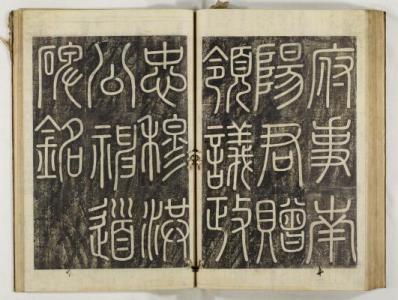 府事南
陽君贈
領議政
忠穆洪
公神道
碑銘